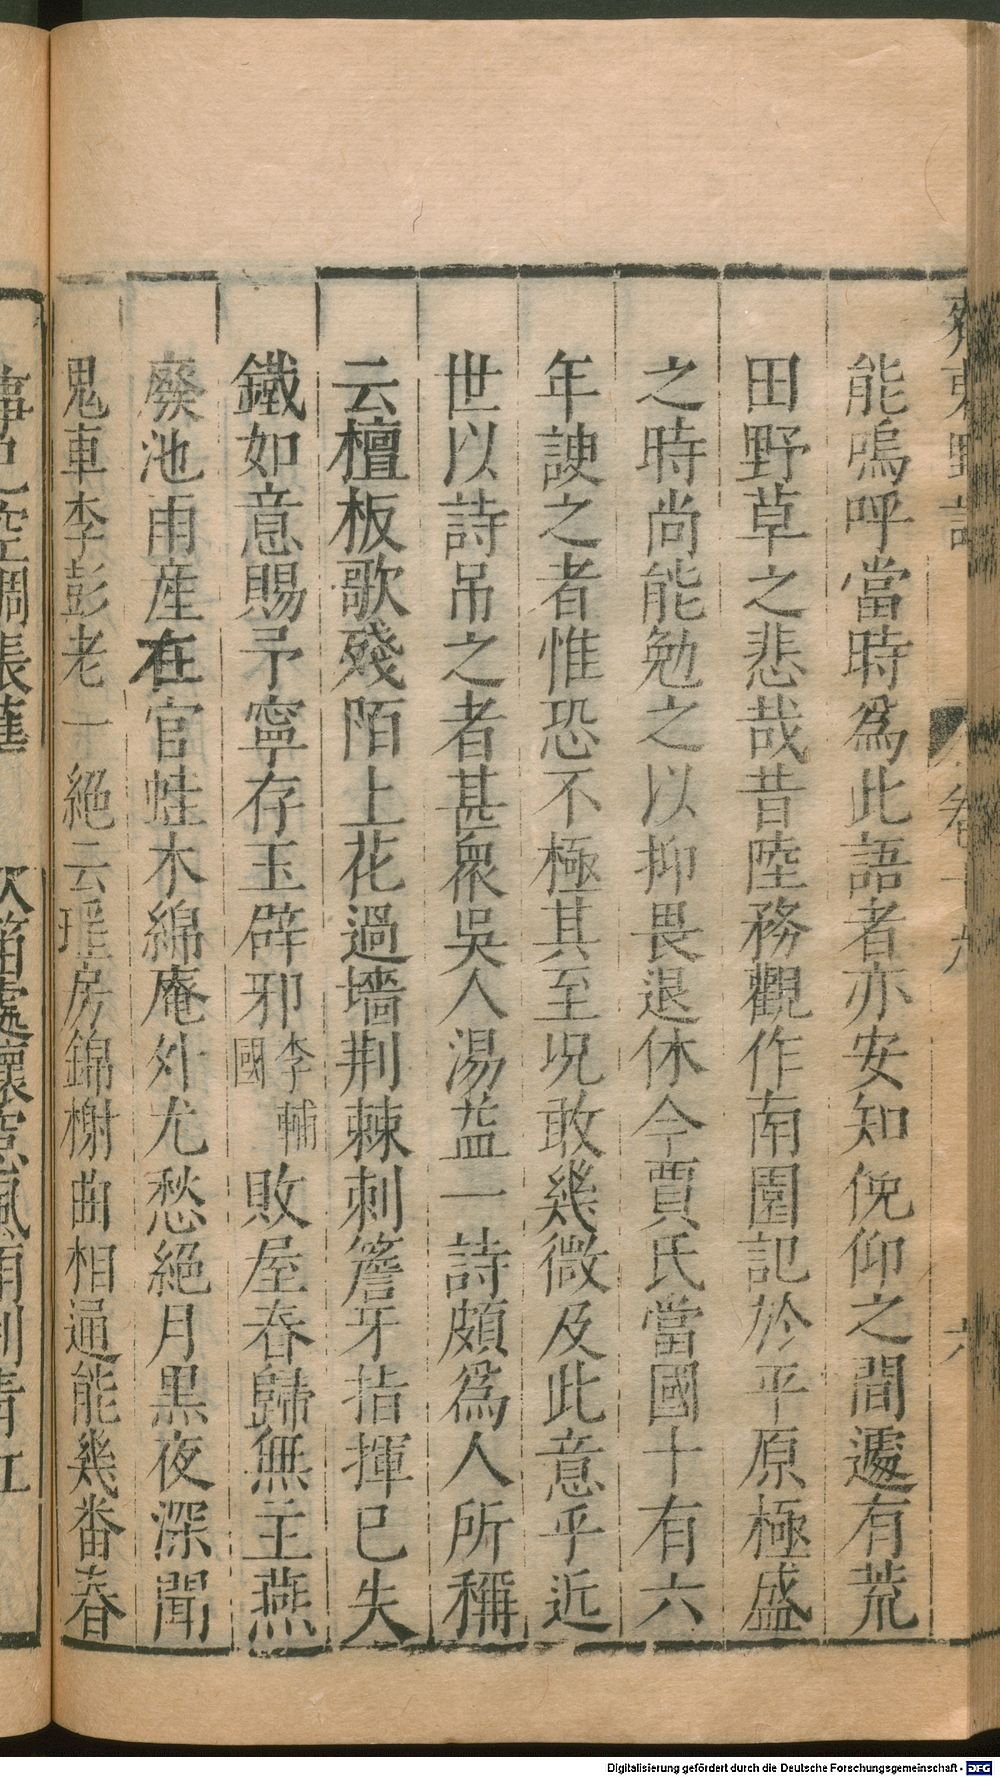 齊東野語
卷十九
六
能嗚呼當時爲此語者亦安知俛仰之間遽有荒
田野草之悲哉昔陸務觀作南園記於平原極盛
之時尚能勉之以抑畏退休今賈氏當國十有六
年諛之者惟恐不極其至况敢幾微及此意乎近
世以詩吊之者甚衆吳人湯益一詩頗爲人所稱
云檀板歌殘陌上花過墻荆棘刺簷牙指揮已失
鐵如意賜予寧存玉辟邪李輔國敗屋春歸無主燕
廢池雨産在官蛙木綿庵外尤愁絕月黒夜深聞
鬼車李彭老一絕云瑤房錦榭曲相通能幾番春
事已空惆悵舊
吹笛處壞窓風雨刷青紅
Digitalisierung gefördert durch die Deutsche Forschungsgemeinschaft - DFG